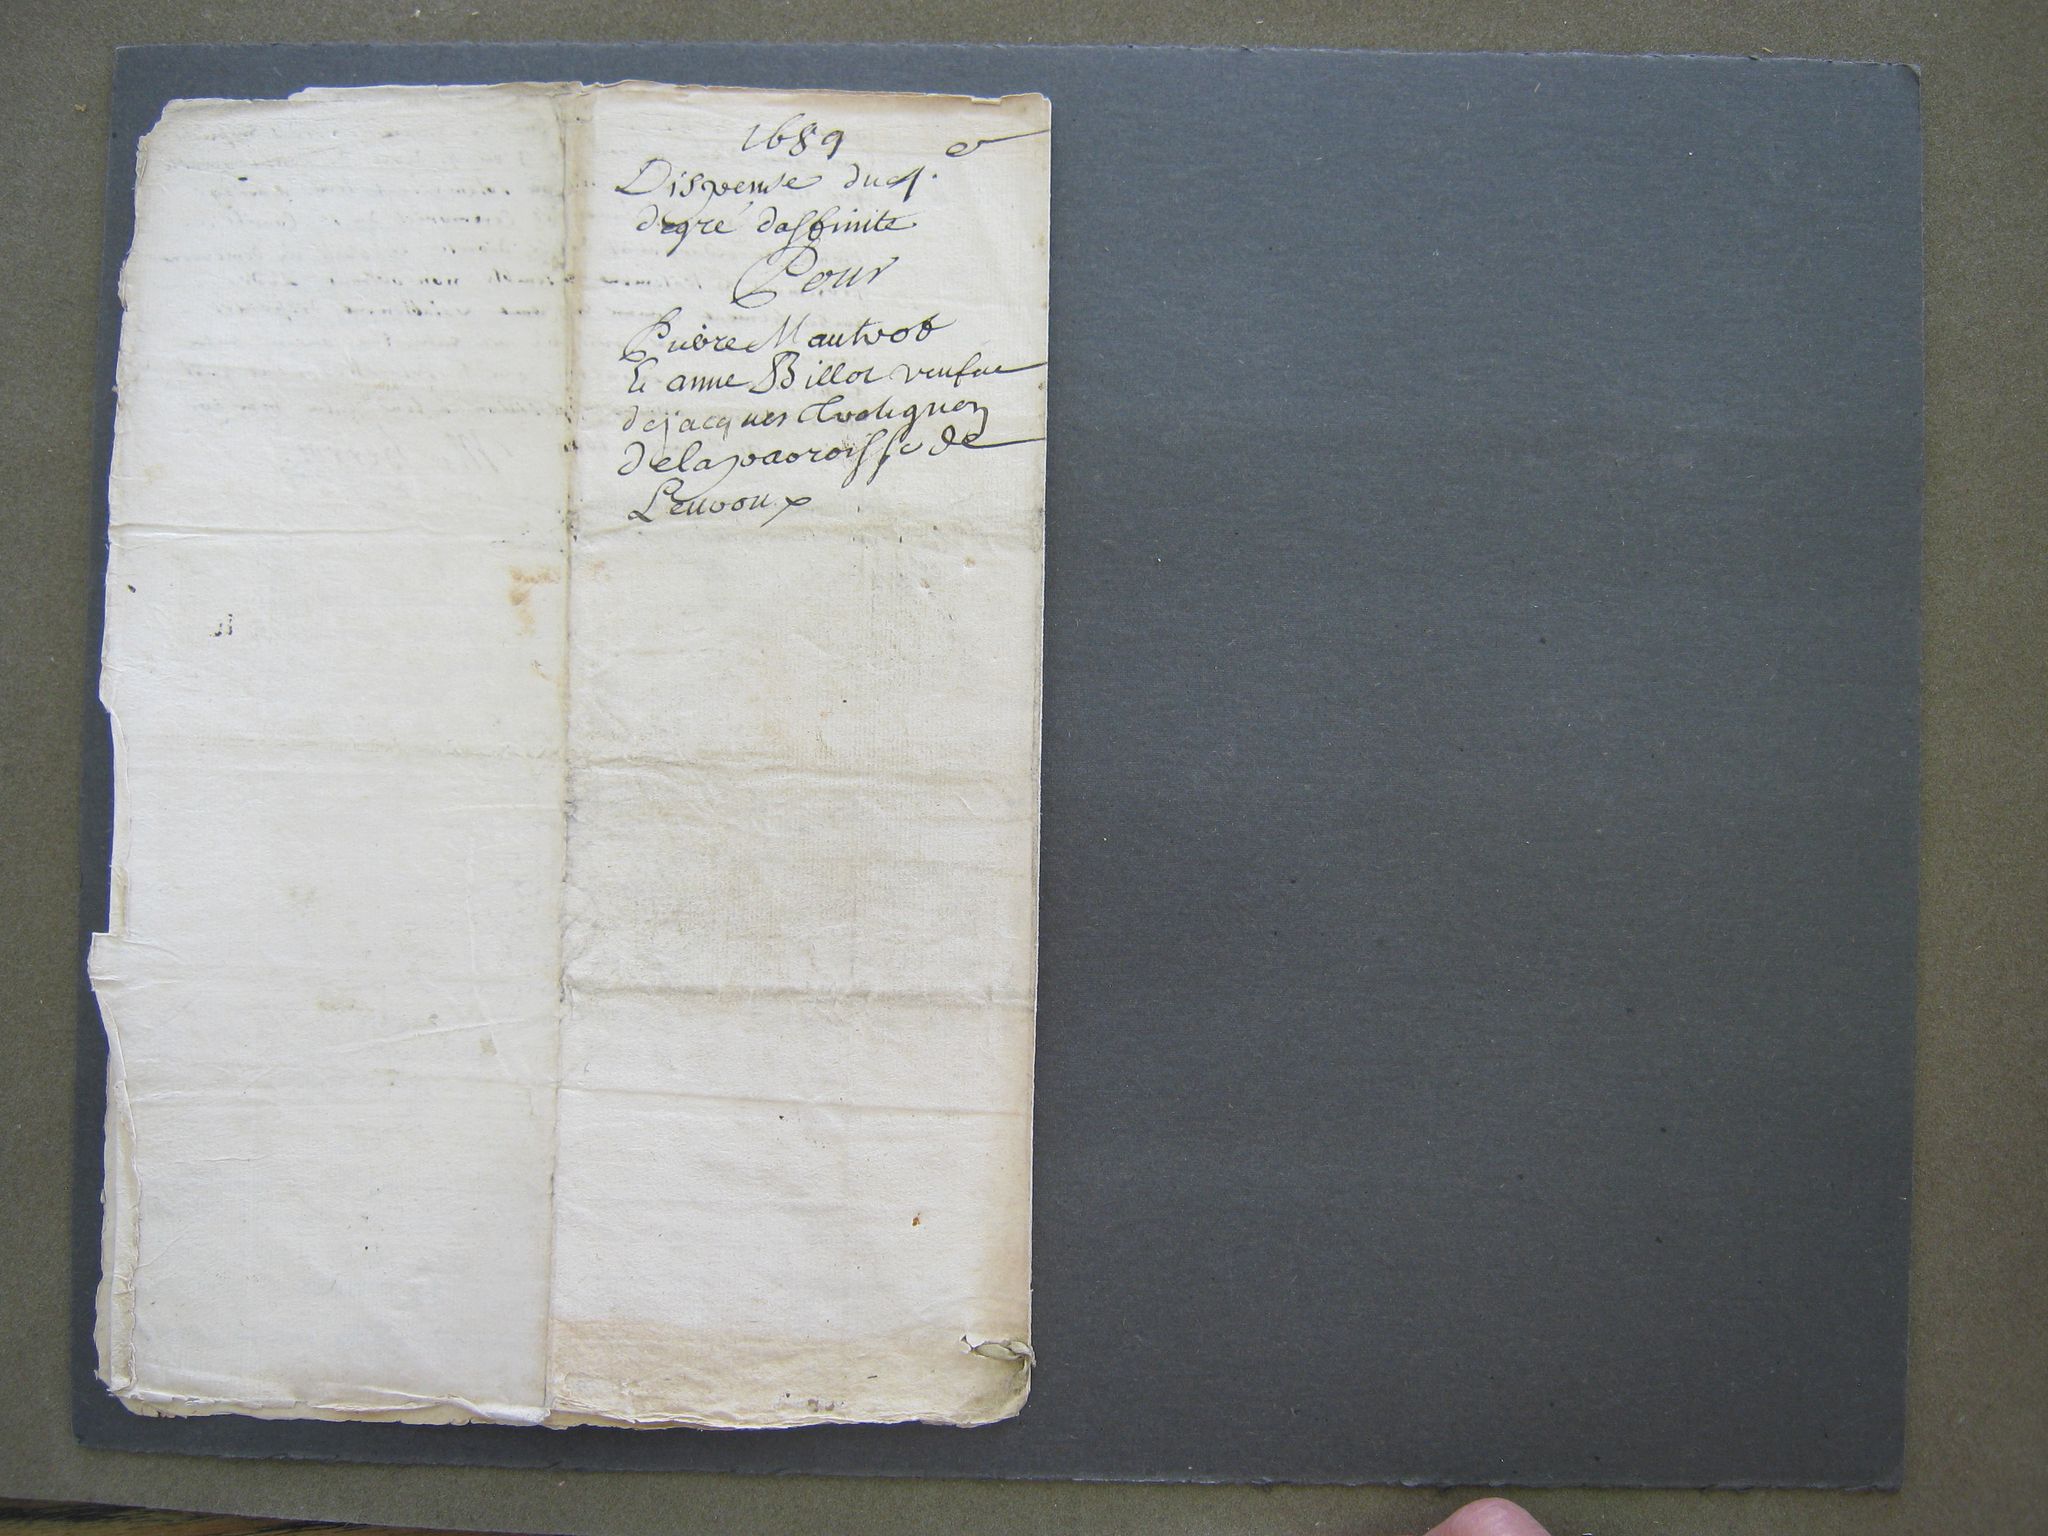 1689
Dispense du 4.e
degré dasfinite
Pour
Pierre Mautrot
Et anne Billot veufue
de jacques
de laparroisse de
Leuroux